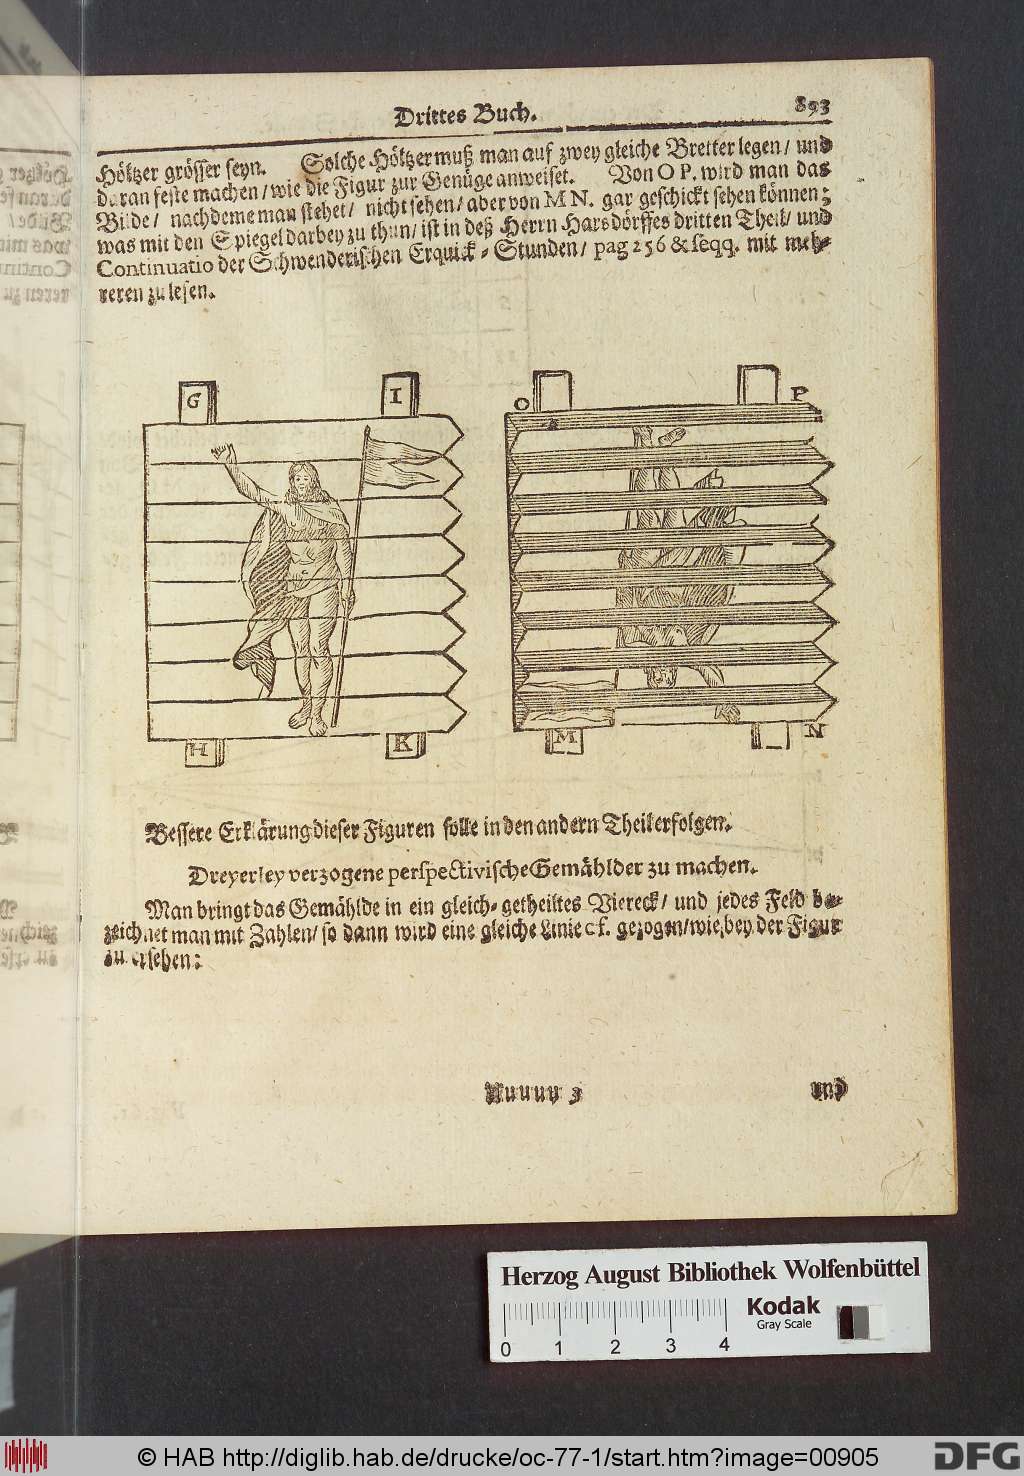 Drittes Buch. 893
Höltzer grösser seyn. Solche Höltzer muß man auf zwey gleiche Bretter legen / und
daran feste machen / wie die Figur zur Genüge anweiset. Von O P. wird man das
Bilde / nachdeme man stehet / nicht sehen / aber von M N. gar geschickt sehen können:
was mit den Spiegel darbey zu thun / ist in deß Herrn Harsdörffes dritten Theil / und
Continuatio der Schwenderischen Erquick-Stunden / pag 256 & seqq. mit meh-
reren zu lesen.
G I
H K
O P
M N
Bessere Erklärung dieser Figuren solle in den andern Theil erfolgen.
Dreyerley verzogene perspectivische Gemählder zu machen.
Man bringt das Gemählde in ein gleich-getheiltes Viereck / und jedes Feld be-
zeichnet man mit Zahlen / so dann wird eine gleiche Linie c f. gezogen / wie bey der Figur
zu ersehen:
Uuuuu 3 und
Herzog August Bibliothek Wolfenbüttel
Kodak
Gray Scale
0 1 2 3 4
© HAB http://diglib.hab.de/drucke/oc-77-1/start.htm?image=00905
DFG